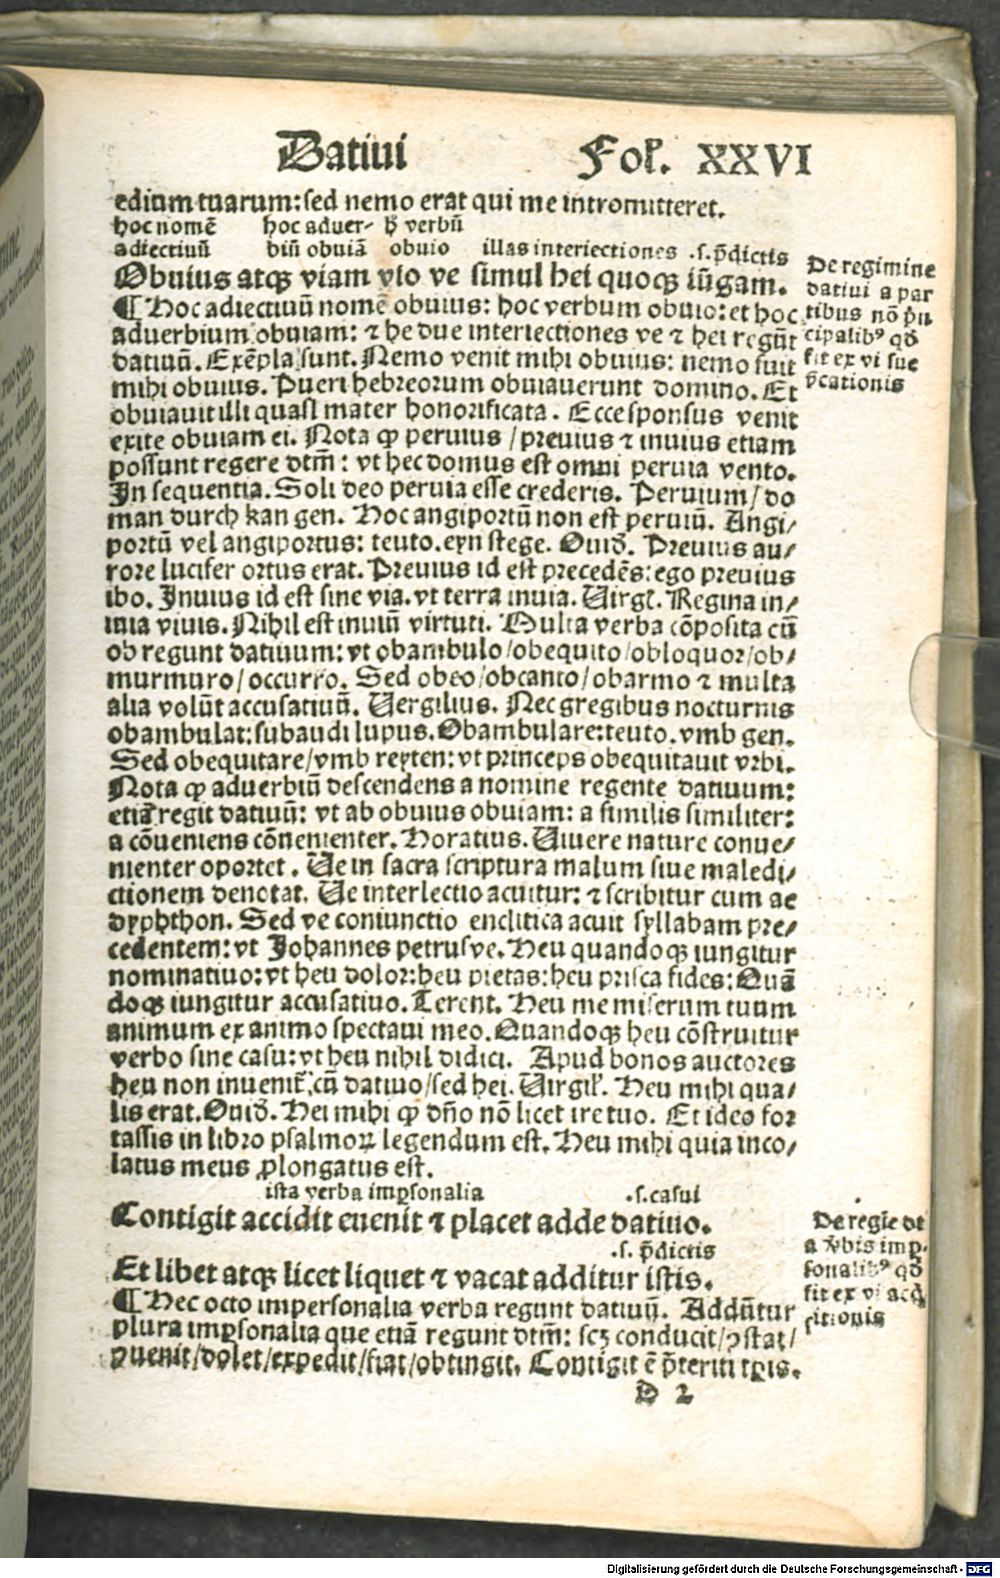 Datiui Fol. XXVI
editum tuarum: sed nemo erat qui me intromitteret.
hoc nomē hoc aduer- h̄ verbū
adiectiuū biū obuiā obuio illas interiectiones .s. p̄dictis
Obuius atqȝ viam vio ve simul hei quoqȝ iūgam.
¶ Hoc adiectiuū nomē obuius: hoc verbum obuio: et hoc
aduerbium obuiam: ⁊ he due interiectiones ve ⁊ hei regūt
datiuū. Exēpla sunt. Nemo venit mihi obuius: nemo fuit
mihi obuius. Pueri hebreorum obuiauerunt domino. Et
obuiauit illi quasi mater honorificata. Ecce sponsus venit
exite obuiam ei. Nota ꝙ peruius / preuius ⁊ inuius etiam
possunt regere dtm̄: vt hec domus est omni peruia vento.
In sequentia. Soli deo peruia esse crederis. Peruium / do
man durch kan gen. Hoc angiportū non est peruiū. Angi/
portū vel angiportus: teuto. eyn stege. Ouid̄. Preuius au/
rore lucifer ortus erat. Preuius id est precedēs: ego preuius
ibo. Inuius id est sine via. vt terra inuia. Virgl̄. Regina in/
inia viuis. Nihil est inuiū virtuti. Multa verba cōposita cū
ob regunt datiuum: vt obambulo / obequito / obloquor / ob/
murmuro / occurro. Sed obeo / obcanto / obarmo ⁊ multa
alia volūt accusatiuū. Vergilius. Nec gregibus nocturnis
obambulat: subaudi lupus. Obambulare: teuto. vmb gen.
Sed obequitare / vmb reyten: vt princeps obequitauit vrbi.
Nota ꝙ aduerbiū descendens a nomine regente datiuum:
etiā regit datiuū: vt ab obuius obuiam: a similis similiter:
a cōueniens cōuenienter. Horatius. Viuere nature conue/
nienter oportet. Ve in sacra scriptura malum siue maledi/
ctionem denotat. Ve interiectio acuitur: ⁊ scribitur cum ae
dyphthon. Sed ve coniunctio enclitica acuit syllabam pre/
cedentem: vt Johannes petrusve. Heu quandoqȝ iungitur
nominatiuo: vt heu dolor: heu pietas: heu prisca fides: Quā
doqȝ iungitur accusatiuo. Terent. Heu me miserum tuum
animum ex animo spectaui meo. Quandoqȝ heu cōstruitur
verbo sine casu: vt heu nihil didici. Apud bonos auctores
heu non inuenit̄ cū datiuo / sed hei. Virgil̄. Heu mihi qua/
lis erat. Ouid̄. Hei mihi ꝙ dn̄o nō licet ire tuo. Et ideo for
tassis in libro psalmoꝝ legendum est. Heu mihi quia inco/
latus meus ꝓlongatus est.
ista verba imp̱sonalia .s. casui
Contigit accidit euenit ⁊ placet adde datiuo.
.s. p̄dictis
Et libet atqȝ licet liquet ⁊ vacat additur istis.
¶ Hec octo impersonalia verba regunt datiuū. Addūtur
plura imp̱sonalia que etiā regunt dtm̄: scȝ conducit / ꝯstat /
ꝯuenit / dolet / expedit / fiat / obtingit. Contigit ē p̄teriti tꝑis.
D 2
De regimine
datiui a par
tibus nō p̄n
cipalibꝰ qd̄
fit ex vi sue
v̄cationis
De regīe dt
a v̄bis imp̱
sonalibꝰ qd̄
fit ex vi acq̄
sitionis
Digitalisierung gefördert durch die Deutsche Forschungsgemeinschaft - DFG